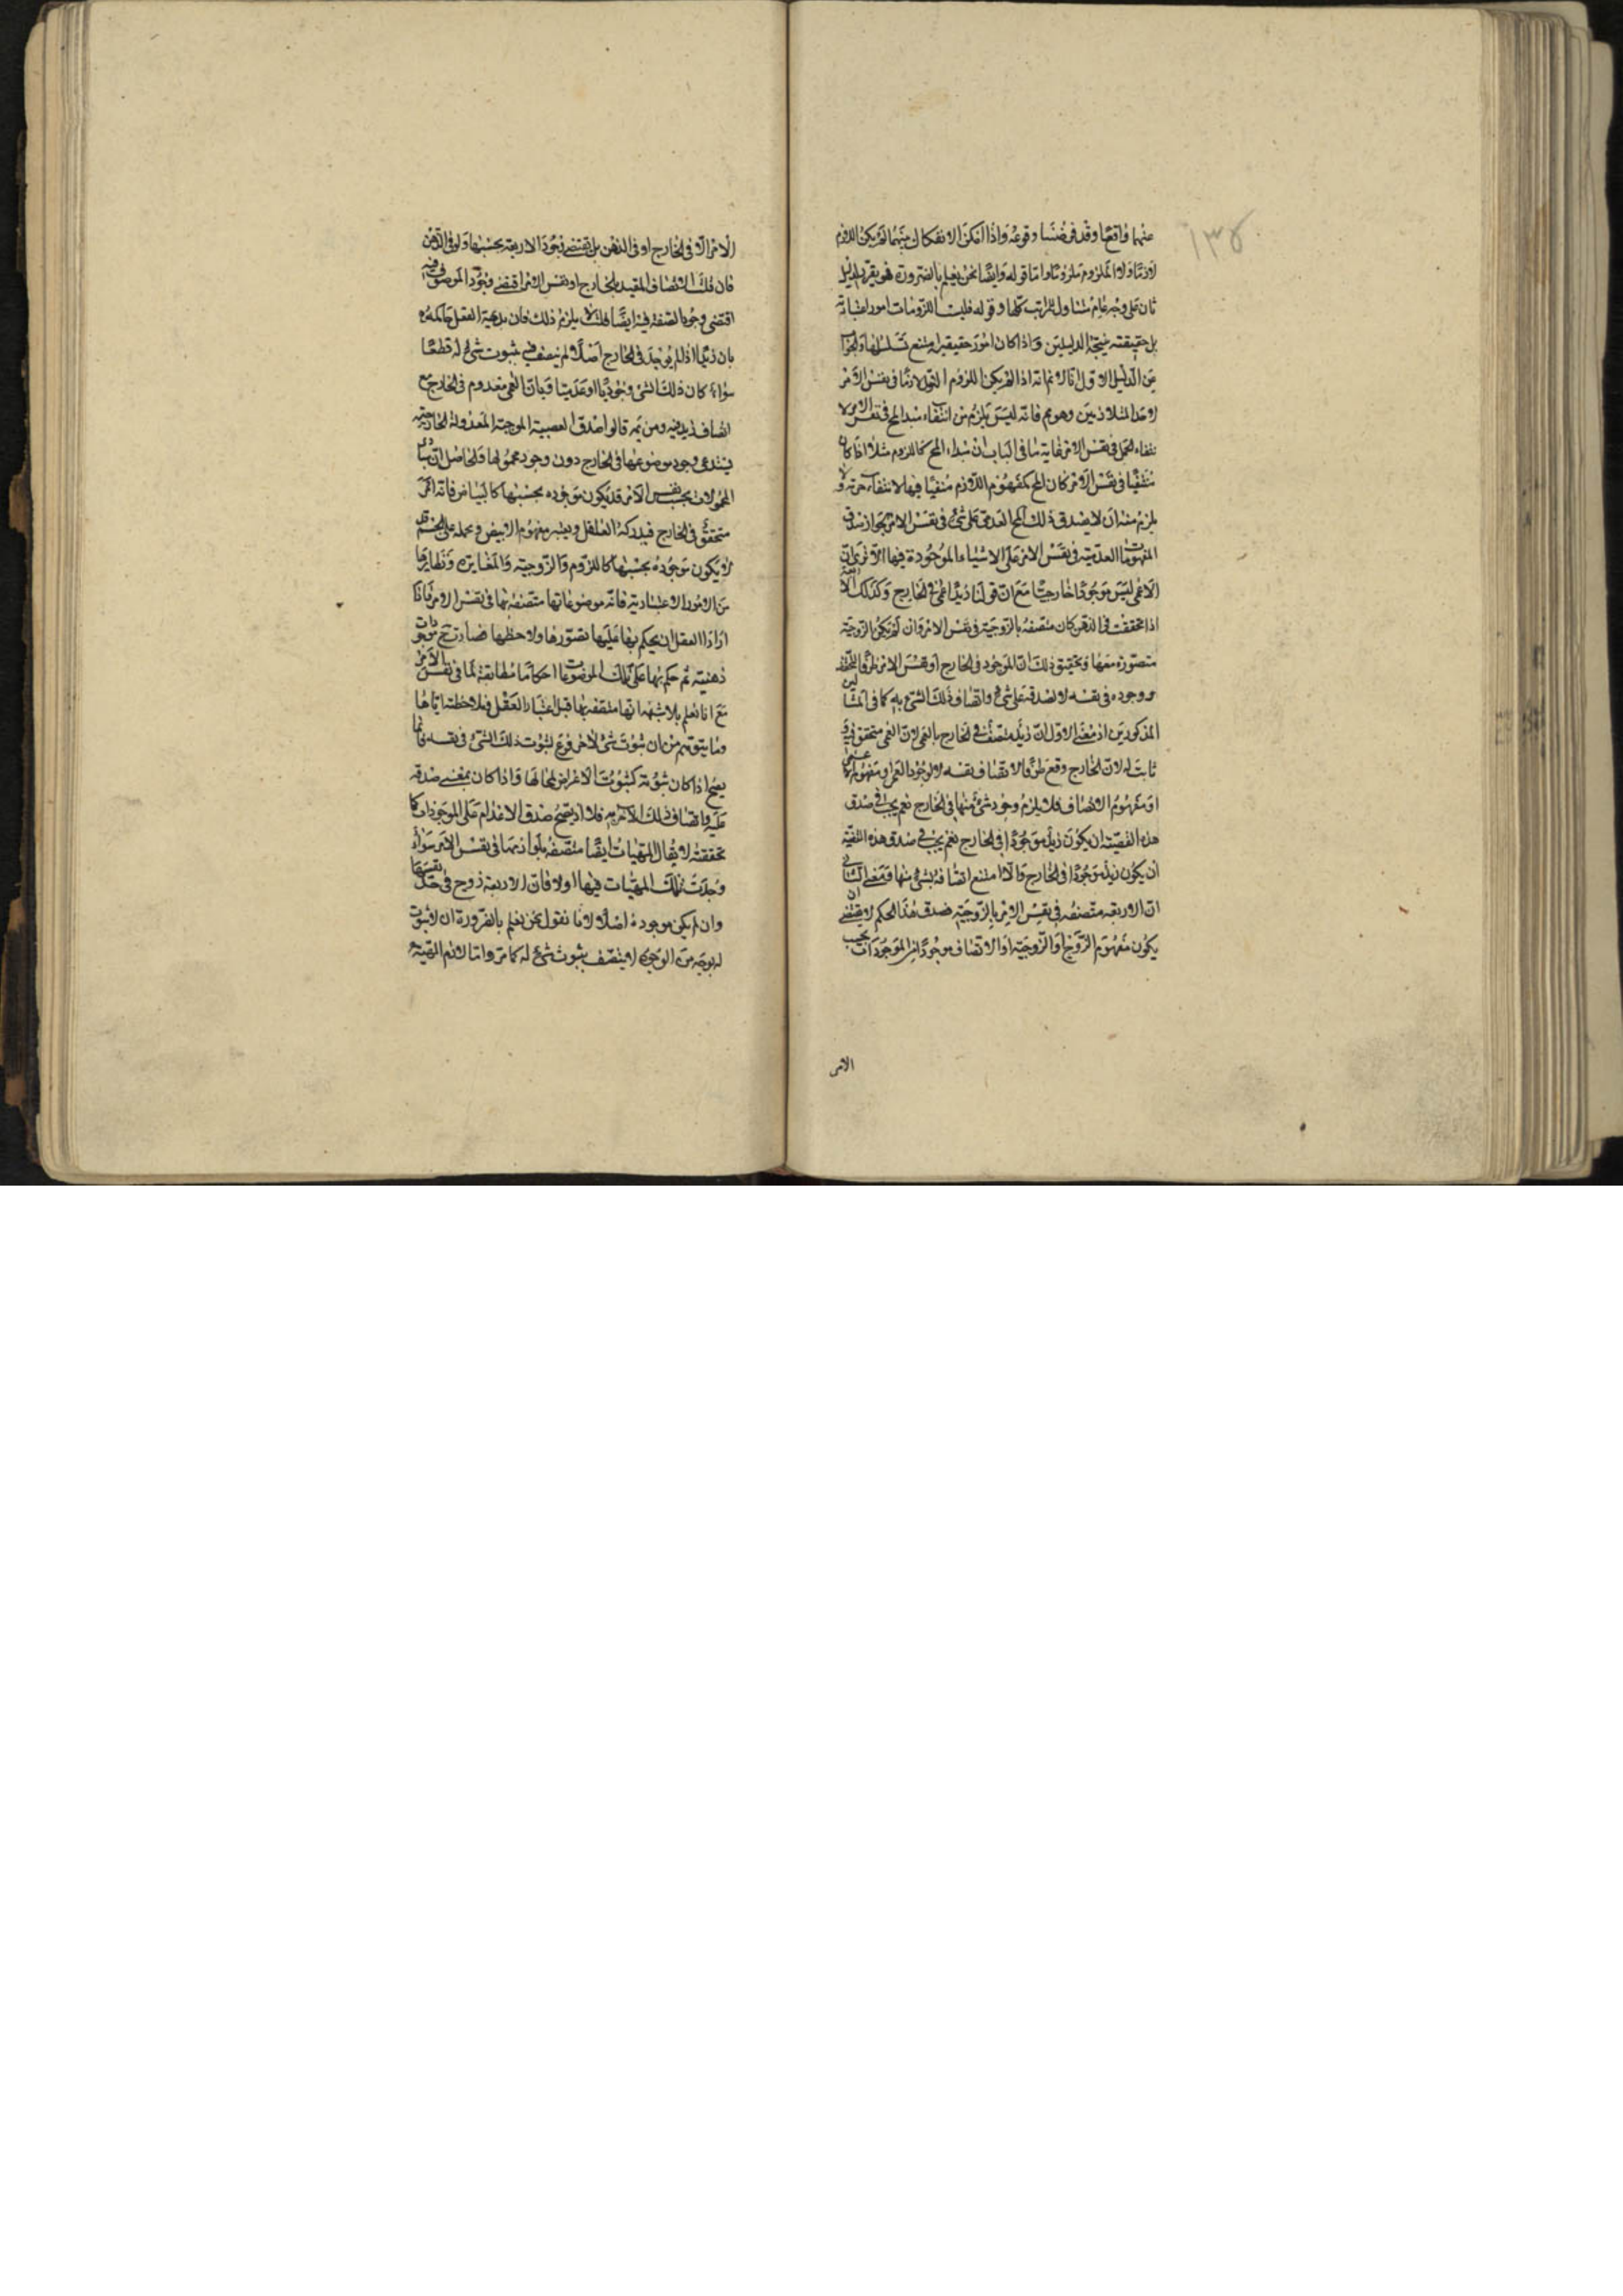 ١٣٥
عنهما واقعا وقد فرضنا وقوعه واذا امكن الانفكاك بينهما لم يكن اللازم
لازما ولا الملزوم ملزوما واما قوله وايضا نحن نعلم بالضرورة فهو يقرر بدليل
ثان على وجه عام متناول للمراتب كلها وقوله فليست اللزومات امورا اعتبارية
بل حقيقته نتيجة الدليلين واذا كان امورا حقيقية امتنع تسلسلها والجواب
عن الدليل الاول انا لا نم انه اذا لم يكن اللزوم الاول لازما في نفس الامر
لاحد المتلازمين وهو مم فانه ليس يلزم من انتفاء مبدا المح في نفس الامر لا
نتفاء الحمل في نفس الامر غاية ما في الباب ان مبداء المح كاللزوم مثلا اذا كان
منتفيا في نفس الامر كان المح كمفهوم اللازم منفيا فيها لانتفاء جزئه ولا
يلزم منه ان لا يصدق ذلك المح العدمي على شئ في نفس الامر لجواز صدق
المفهومات العدمية في نفس الامر على الاشياء الموجودة فيها الا ترى ان
الاعمى ليس موجودا خارجيا مع ان قولنا زيد اعمى في الخارج وكذلك الاربعة
اذا تحققت في الذهن كان متصفة بالزوجية في نفس الامر وان لم يكن الزوجية
متصورة معها وتحقيق ذلك ان الموجود في الخارج او نفس الامر ظرفا للتحقق
ووجوده في نفسه لا لصدقه على شئ واتصاف ذلك الشئ به كما في المثالين
المذكورين اذ معنى الاول ان زيدا متصف في الخارج بالعمى لا ان العمى متحقق فيه و
ثابت له لان الخارج وقع ظرفا لاتصاف نفسه لا لوجود العمى او مفهوم الاعمى
او مفهوم الاتصاف فلا يلزم وجود شئ منها في الخارج نعم يجب في صدق
هذه القضية ان يكون زيد موجودا في الخارج نعم يجب في صدق هذه القضية
ان يكون زيد موجودا في الخارج والا امتنع اتصافه بشئ منها ومعنى الثاني
ان الاربعة متصفة في نفس الامر بالزوجية فصدق هذا الحكم لا يقتضي ان
يكون مفهوم الزوج او الزوجية او الاتصاف موجودا من الموجودات بحسب
الامر
الامر الا في الخارج او في الذهن بل يقتضي وجود الاربعة بحسبها ولو في الذهن
فان قلت الاتصاف المقيد بالخارج او نفس الامر اقتضى وجود الموصوف فيه
اقتضى وجود الصفة فيه ايضا قلت لا يلزم ذلك فان بديهة العقل حاكمة
بان زيدا اذا لم يوجد في الخارج اصلا لم يتصف فيه بثبوت شئ له قطعا
سواء كان ذلك الشئ وجوديا او عدميا وبان العمى معدوم في الخارج مع
اتصاف زيد فيه ومن ثمه قالوا صدق القضية الموجبة المعدولة الخارجية
يستدعي وجود موضوعها في الخارج دون وجود محمولها والحاصل ان مبادي
المحمولات بحسب نفس الامر قد يكون موجودة بحسبها كالبياض فانه امر
متحقق في الخارج فيدركه العاقل ويعتبر مفهوم الابيض ويحمله على الجسم وقد
لا يكون موجودة بحسبها كاللزوم والزوجية والمغايرة ونظايرها
من الامور الاعتبارية فانه موضوعاتها متصفة بها في نفس الامر فاذا
اراد العقل ان يحكم بها عليها تصورها ولاحظها فصارت ح موجودات
ذهنية ثم حكم بها على تلك الموضوعات احكاما مطابقة لما في نفس الامر
مع انا نعلم بلا شبهة انها متصفة بها قبل اعتبار العقل وملاحظته اياها
وما يتوهم من ان ثبوت شئ لاخر فرع لثبوت ذلك الشئ في نفسه فانما
يصح اذا كان ثبوته كثبوت الاعراض لمحالها واذا كان بمعنى صدقه
عليه واتصاف ذلك الاخر به فلا اذ يصح صدق الاعدام على الموجودات كما
تحققته لا يقال المهيات ايضا متصفة بلوازمها في نفس الامر سواء
وجدت تلك المهيات فيها اولا فان الاربعة زوج في حد نفسها
وان لم يكن موجودة اصلا لانا نقول نحن نعلم بالضرورة ان لا ثبوت
له بوجه من الوجوه لا يتصف بثبوت شئ له كما مر واما لازم المهية